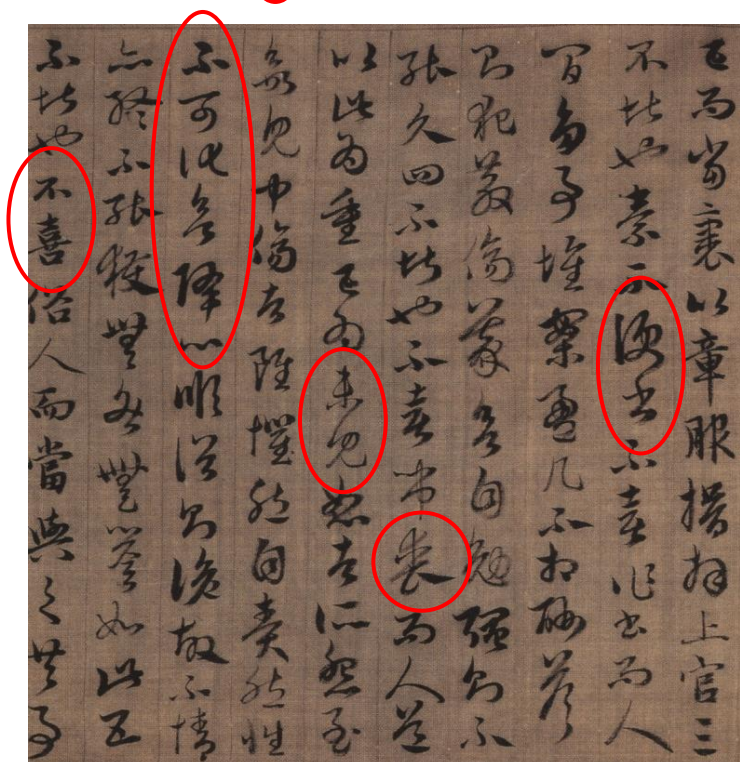 已而當裹以章服揖拜上官三
不堪也素不便書不喜作書而人
間多事堆案盈几不相酬答
則犯教傷義欲自勉強則不
能久四不堪也不喜弔喪而人道
以此為重已為未見恕者所怨至
欲見中傷者雖懼然自責然性
不可化欲降心順俗則詭故不情
亦終不能獲無咎無譽如此五
不堪也不喜俗人而當與之共事